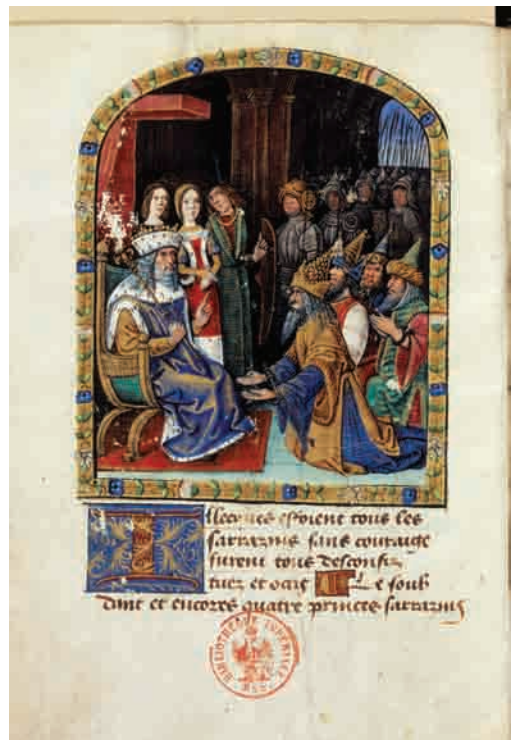 Illecques estoient tous les
sarrazins sans couraige
furent tous desconfiz
tuez et ocis Le soub
dant et encores quatre princes sarrazins
BIBLIOTHEQUE IMPERIALE